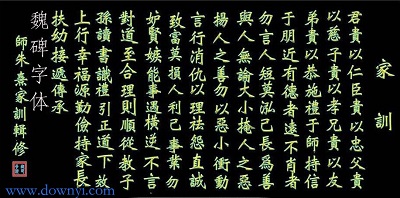 家訓
君貴以仁臣貴以忠父貴
以慈子貴以孝兄貴以友
弟貴以恭施禮于師持信
于朋近有德者遠不肖者
勿言人短莫泓己長為善
與人無論大小掩人之惡
揚人之善勿以惡小衝動
言行消仇以理祛怨直誠
致富莫損人利己事業勿
妒賢嫉能事遇橫逆不言
對道至合理則順從教子
孫讀書識禮引正道下
上行幸福源勤儉持家長
扶幼接遞傳承
師朱熹家訓輯修
魏碑字体
www.downyi.com